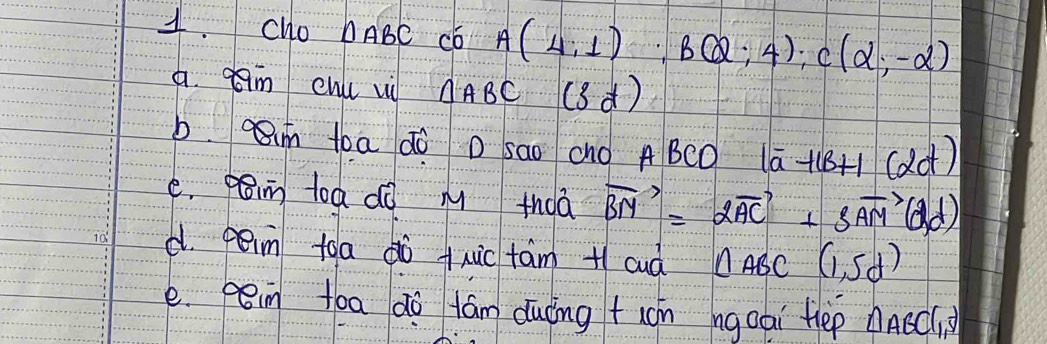 1. Cho ΔABC có A(4,1); B(2;4); C(2;-2)
a. Tìm chu vi ΔABC (3đ)
b. Tìm tọa độ D sao cho ABCD là HBH (2đ)
c. Tìm tọa độ M thoả BM→ = 2AC→ + 3AM→ (2đ)
d. Tìm tọa độ trực tâm H của ΔABC (1,5đ)
e. Tìm tọa độ tâm đường tròn ngoại tiếp ΔABC(1,